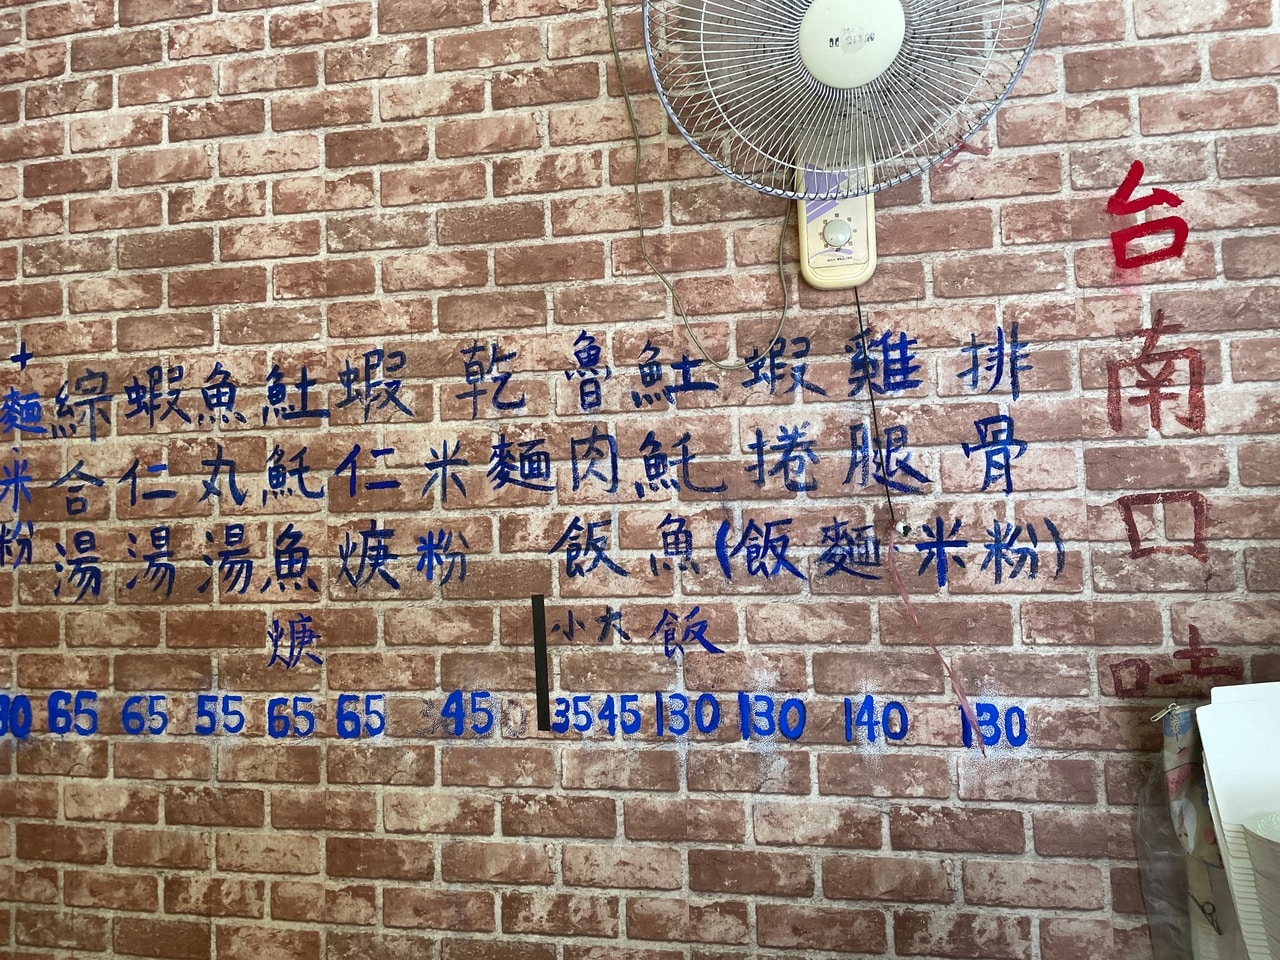 台南口味
排骨 130
雞腿 140
蝦捲 130
(飯麵米粉)
𩵚魠魚飯 130
魯肉飯 小大 35 45
乾麵
米粉 45
蝦仁焿 65
𩵚魠魚焿 65
魚丸湯 55
蝦仁湯 65
綜合湯 65
+麵.米粉